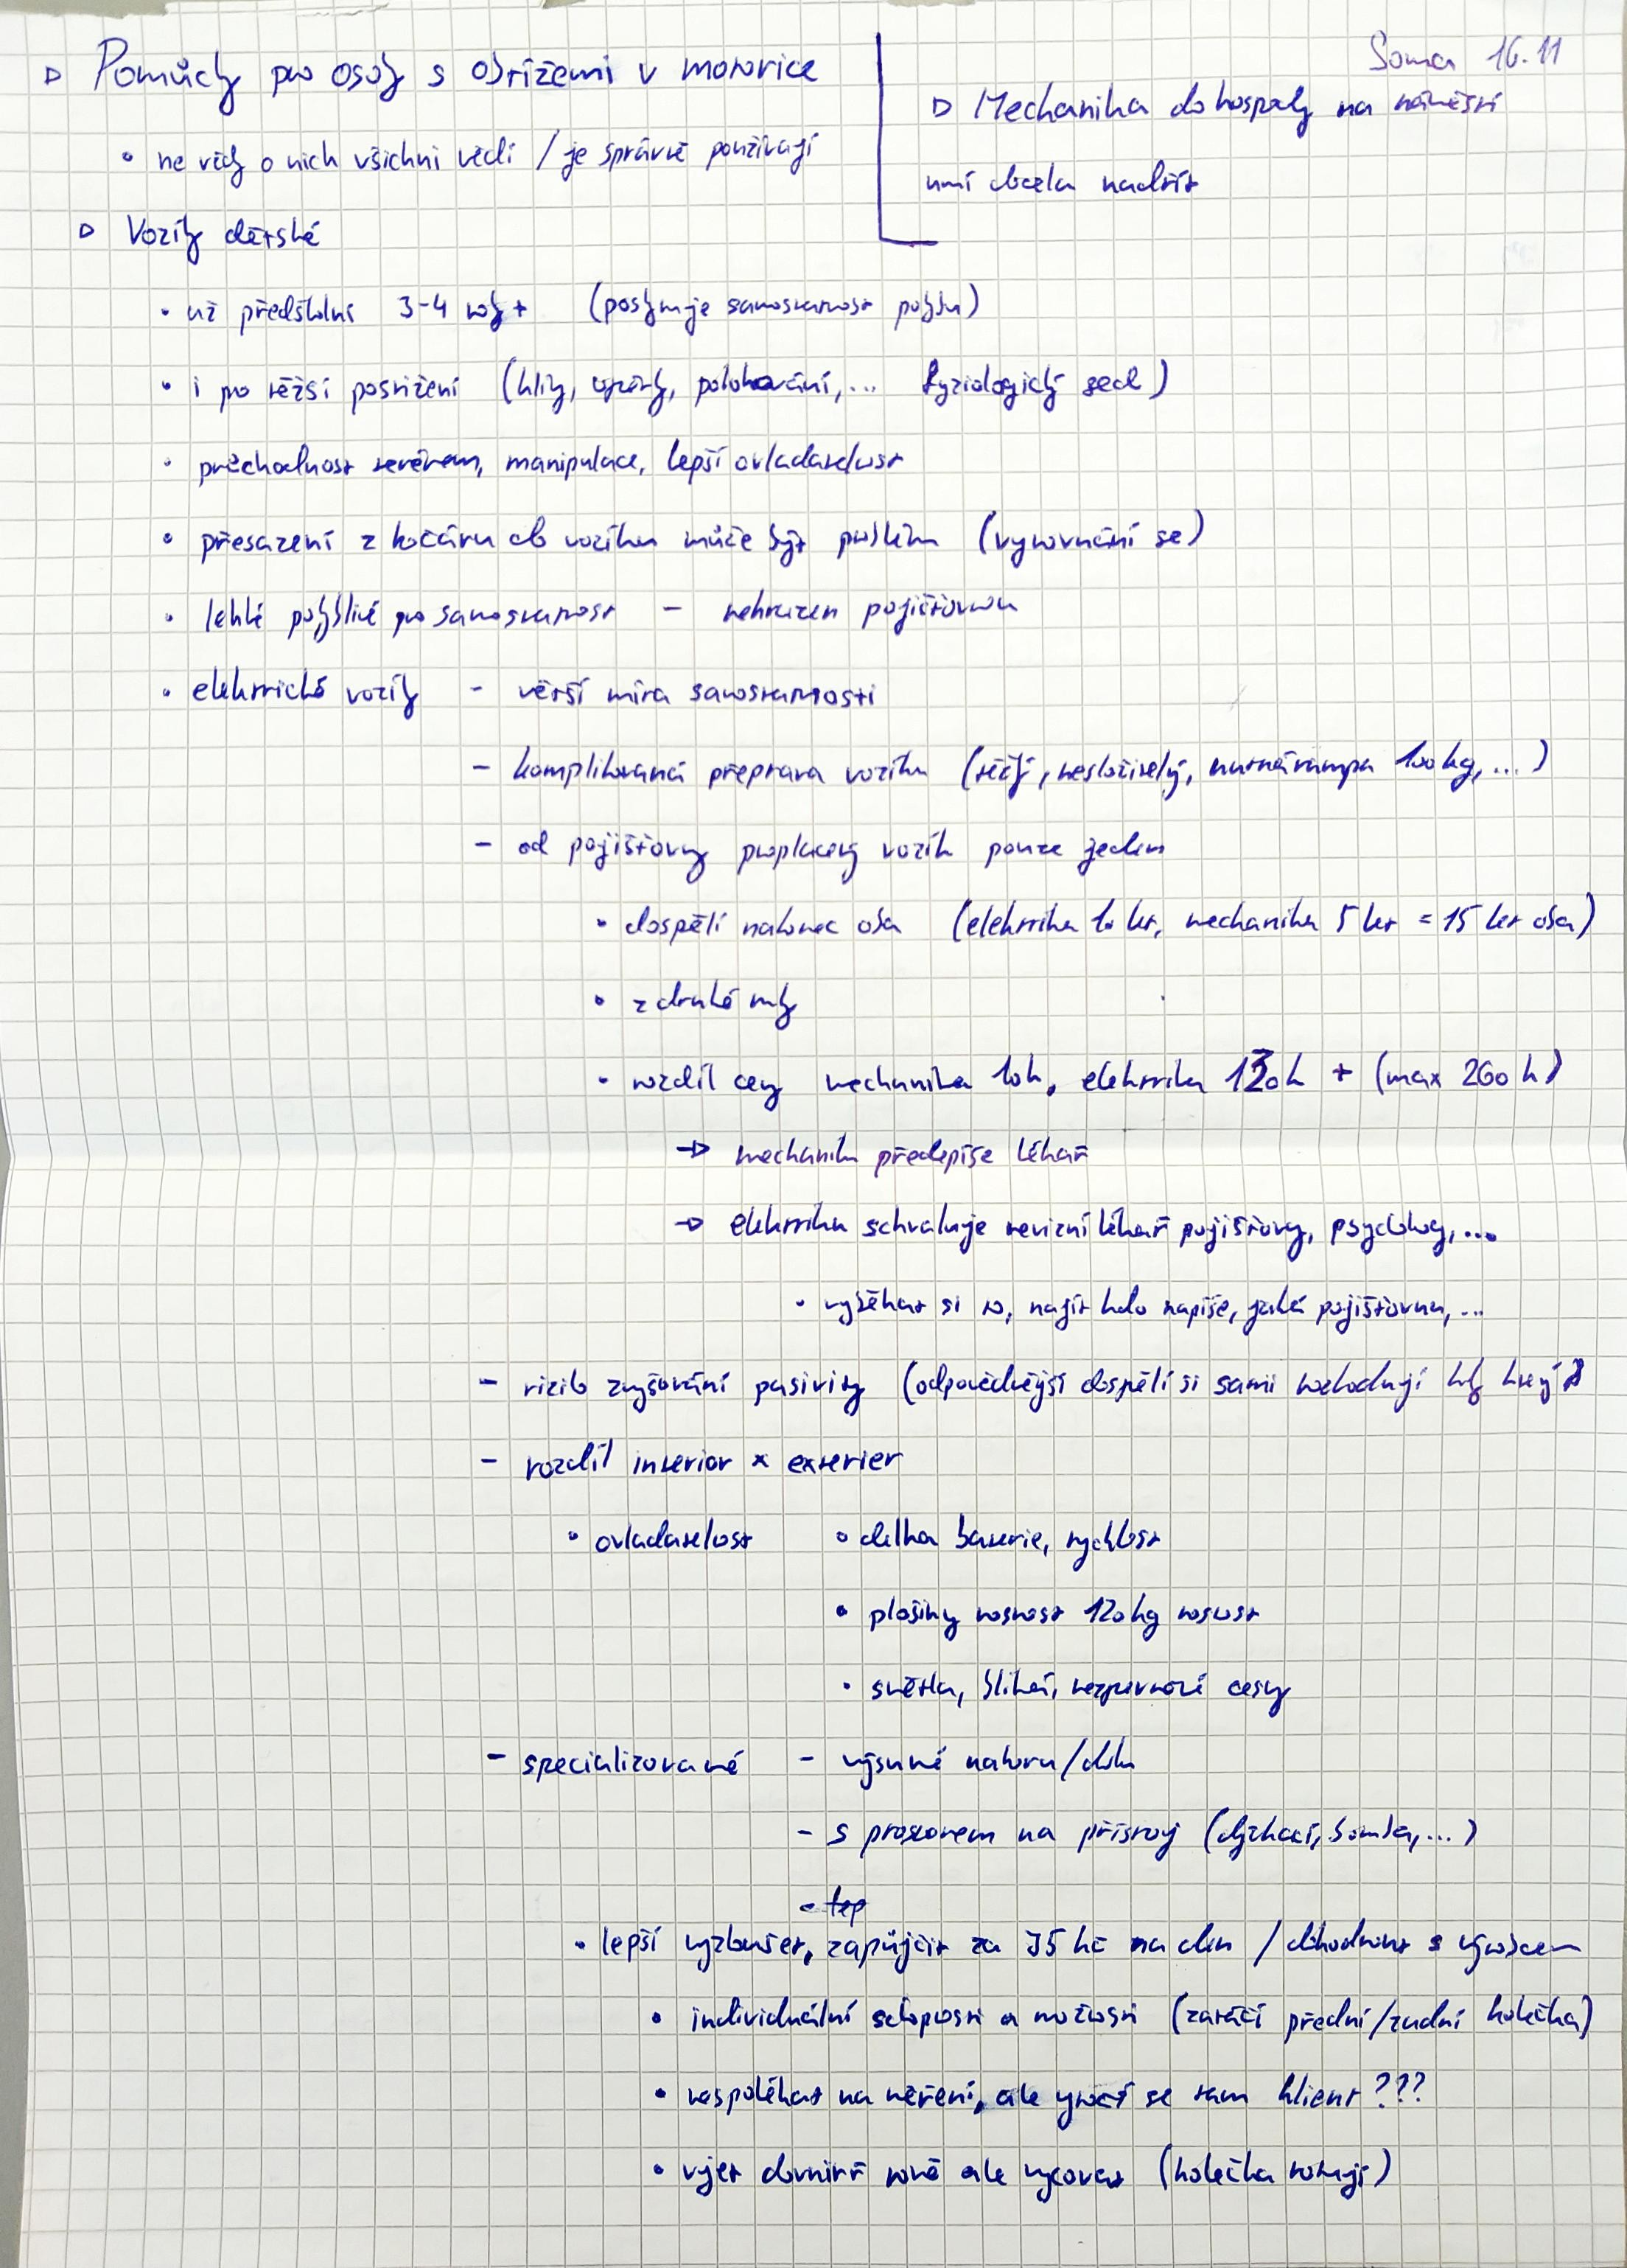 Soma 16.11
▷ Pomůcky pro osoby s obtížemi v motorice
• ne vždy o nich všichni vědí / je správně používají
▷ Mechanika do hospody na náměstí
umí docela nadřít
▷ Vozíky dětské
• už předškolní 3-4 roky + (poskytuje samostatnost pohybu)
• i pro těžší postižení (klíny, opěrky, polohování, ... fyziologický sed)
• průchodnost terénem, manipulace, lepší ovladatelnost
• přesazení z kočáru do vozíku může být problém (vyrovnání se)
• lehké pohyblivé pro samostatnost - nehrazen pojišťovnou
• elektrické vozíky - větší míra samostatnosti
- komplikovaná přeprava vozíku (těžký, nesložitelný, nutná rampa 100 kg, ...)
- od pojišťovny proplacený vozík pouze jeden
• dospělí nakonec oba (elektrika 10 let, mechanika 5 let = 15 let oba)
• z druhé ruky
• rozdíl ceny mechanika 10k, elektrika 130k + (max 260 k)
→ mechaniku předepíše lékař
→ elektriku schvaluje revizní lékař pojišťovny, psycholog, ...
• vyběhat si to, najít kdo napíše, jaká pojišťovna, ...
- riziko zvyšování pasivity (odpovědnější dospělí si sami rozhodují kdy který)
- rozdíl interior × exterier
• ovladatelnost • délka baterie, rychlost
• plošiny nosnost 120 kg nosnost
• světla, blikání, nezpevnové cesty
- specializované - výsuvné nahoru/dolu
- s prostorem na přístroj (dýchací, bomba, ...)
- lep
• lepší vyzkoušet, zapůjčit za 35 kč na den / dohodnout s výrobcem
• individuální schopnosti a možnosti (zatáčí přední/zadní kolečka)
• nespoléhat na měření, ale vytočí se tam klient ???
• vjet dovnitř rovně ale vycouvat (kolečka rotují)